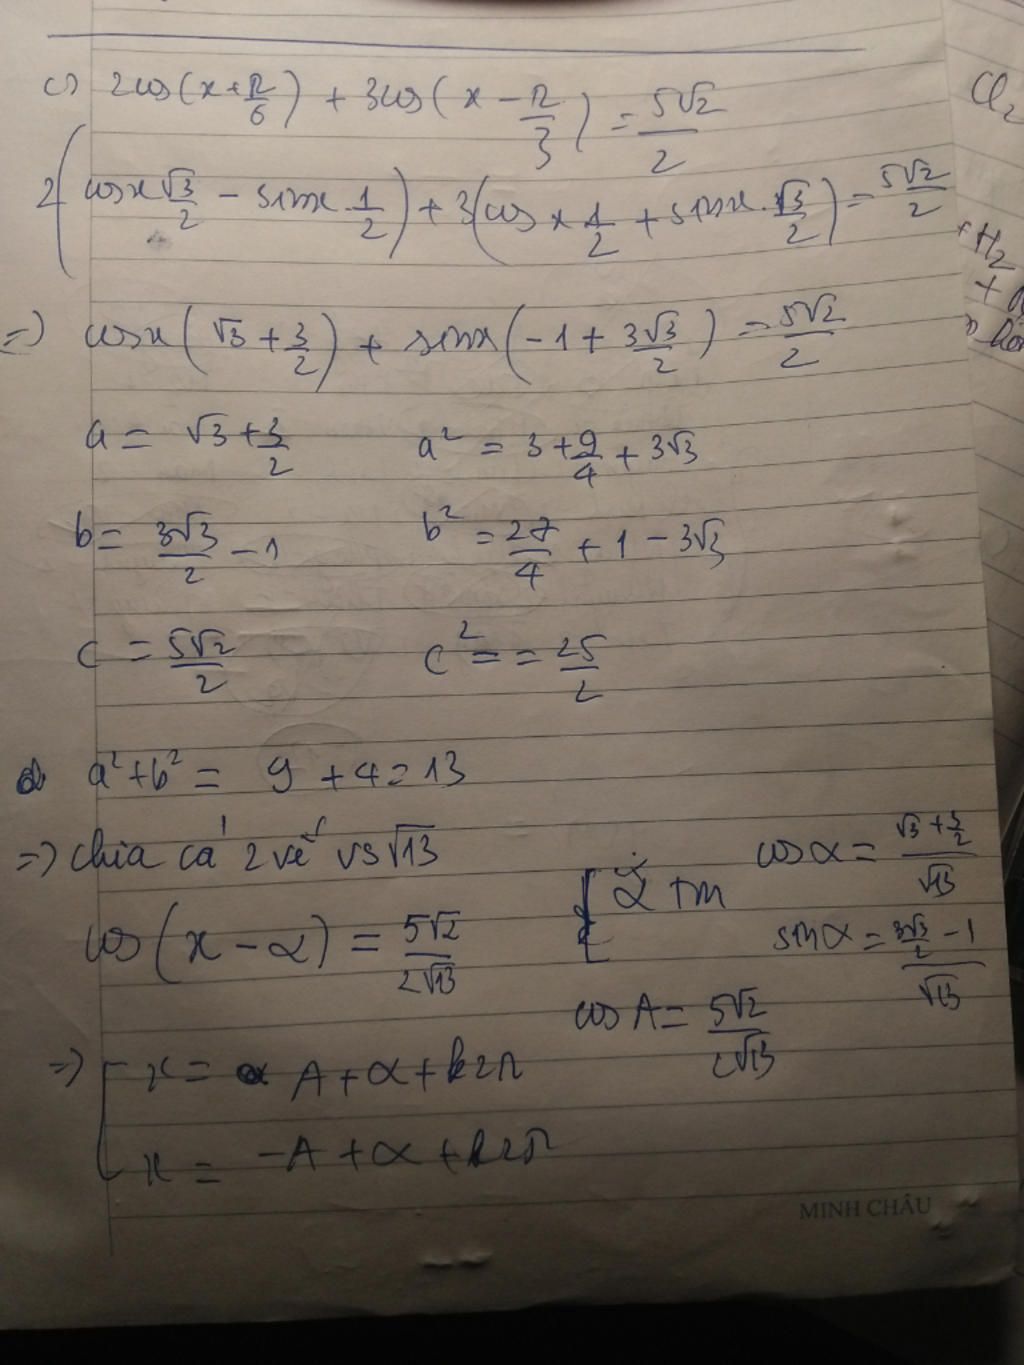 c) 2cos(x+π/6) + 3cos(x − π/3) = 5√2/2
2(cosx √3/2 − sinx . 1/2) + 3(cos x 1/2 + sinx . √3/2) = 5√2/2
=> cosx(√3 + 3/2) + sinx(−1 + 3√3/2) = 5√2/2
a = √3 + 3/2 a² = 3 + 9/4 + 3√3
b = 3√3/2 − 1 b² = 27/4 + 1 − 3√3
c = 5√2/2 c² = = 25/2
a² + b² = 9 + 4 = 13
=> chia cả 2 vế vs √13
cos(x − α) = 5√2/2√13
{ α tm cosα = (√3 + 3/2)/√13
sinα = (3√3/2 − 1)/√13
cos A = 5√2/2√13
=> [ x = A + α + k2π
x = −A + α + k2π
MINH CHÂU
Cl₂
+ H₂
+